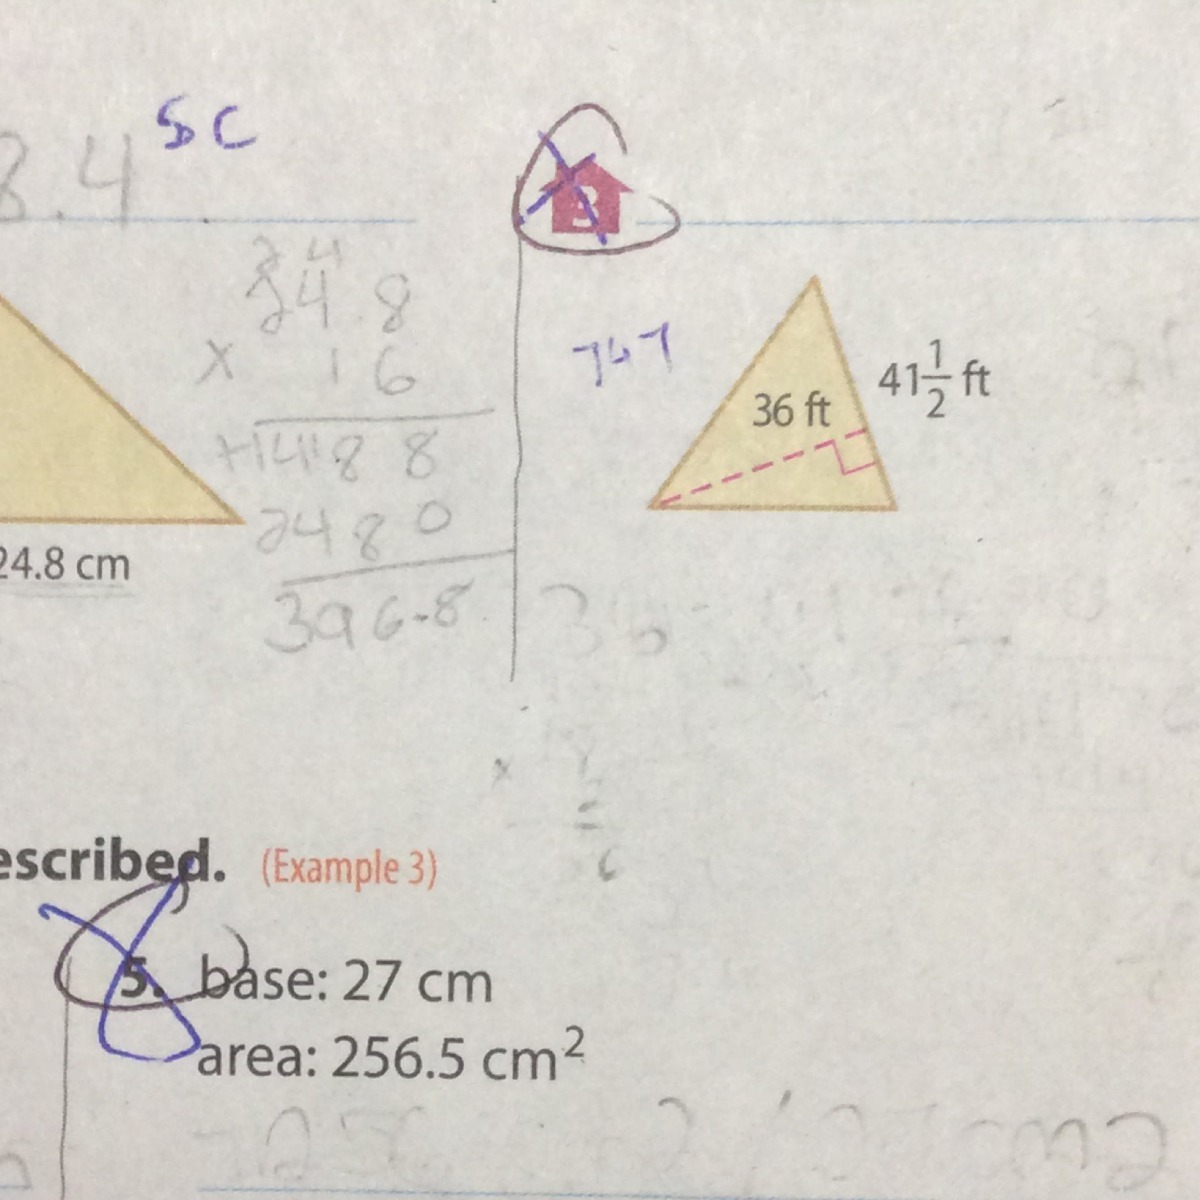 8.4 SC
3
24
24.8
x 16
+1488
2480
396.8
24.8 cm
747
36 ft
41 1/2 ft
36
escribed. (Example 3)
5. base: 27 cm
area: 256.5 cm²